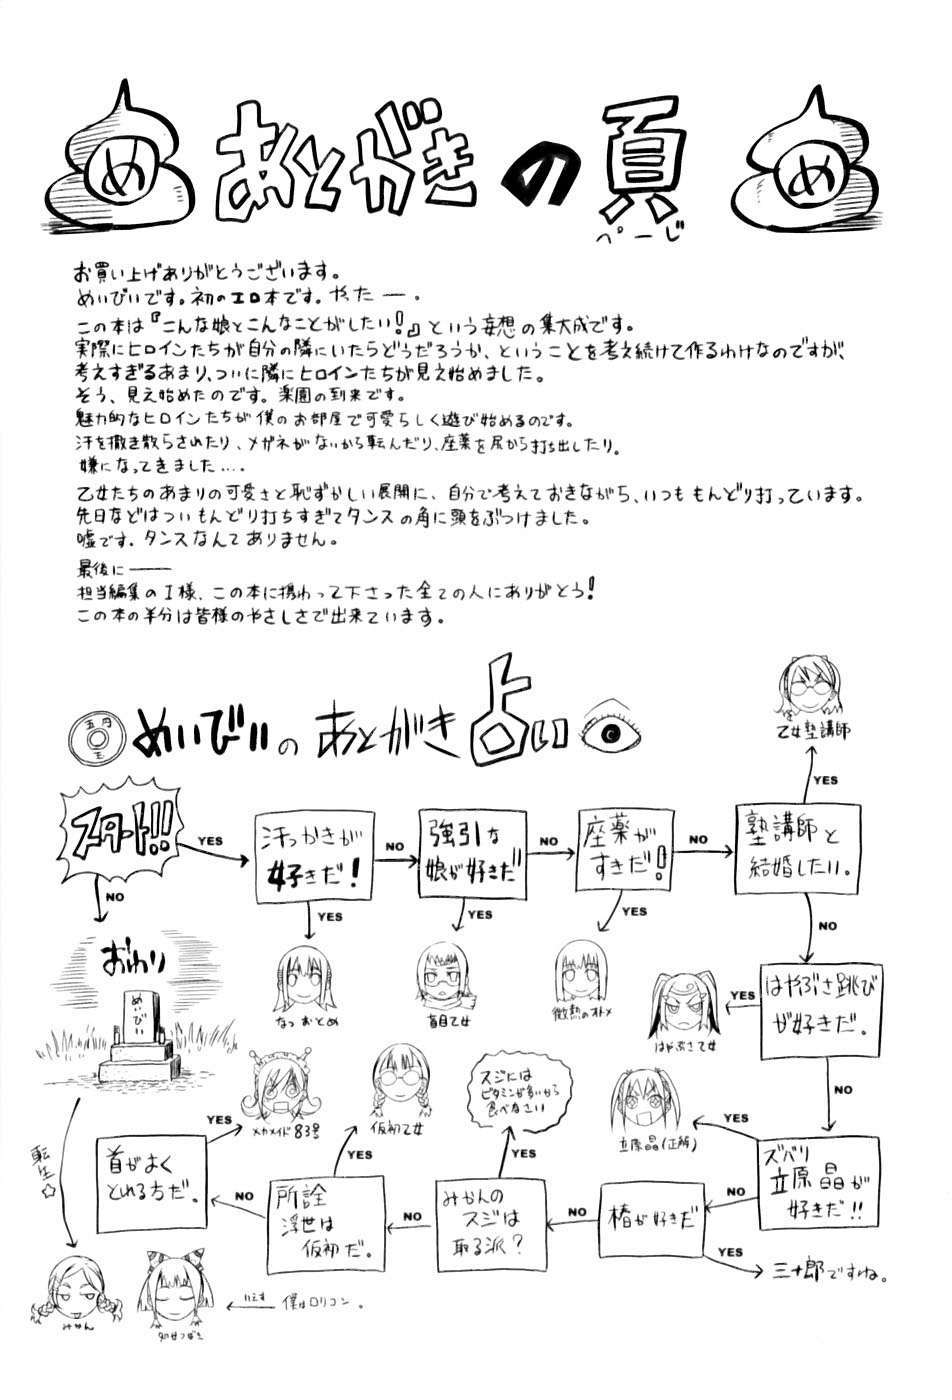 め
あとがきの頁
ぺーじ
め
お買い上げありがとうございます。
めいびいです。初のエロ本です。やったー。
この本は『こんな娘とこんなことがしたい!』という妄想の集大成です。
実際にヒロインたちが自分の隣にいたらどうだろうか、ということを考え続けて作るわけなのですが、
考えすぎるあまり、ついに隣にヒロインたちが見え始めました。
そう、見え始めたのです。楽園の到来です。
魅力的なヒロインたちが僕のお部屋で可愛らしく遊び始めるのです。
汗を撒き散らされたり、メガネがないから転んだり、座薬を尻から打ち出したり。
嫌になってきました….
乙女たちのあまりの可愛さと恥ずかしい展開に、自分で考えておきながら、いつももんどり打っています。
先日などはついもんどり打ちすぎてタンスの角に頭をぶつけました。
嘘です。タンスなんてありません。
最後に――
担当編集のI様、この本に携わって下さった全ての人にありがとう!
この本の半分は皆様のやさしさで出来ています。
五円
めいびいのあとがき占い
乙女塾講師
YES
スタート!!
YES
汗っかきが
好きだ!
NO
強引な
娘が好きだ
NO
座薬が
すきだ!
NO
塾講師と
結婚したい。
NO
YES
YES
YES
NO
おわり
めいびい
なつおとめ
盲目乙女
微熱のオトメ
はやぶさ乙女
YES
はやぶさ跳び
が好きだ。
NO
転生☆
YES
メカメイド83号
仮初乙女
YES
スジには
ビタミンが多いから
食べなさい
YES
立原晶(正解)
YES
首がよく
とれる方だ。
NO
所詮
浮世は
仮初だ。
NO
みかんの
スジは
取る派?
NO
椿が好きだ
NO
ズバリ
立原晶が
好きだ!!
YES
三十郎ですね。
みかん
いえす
僕はロリコン。